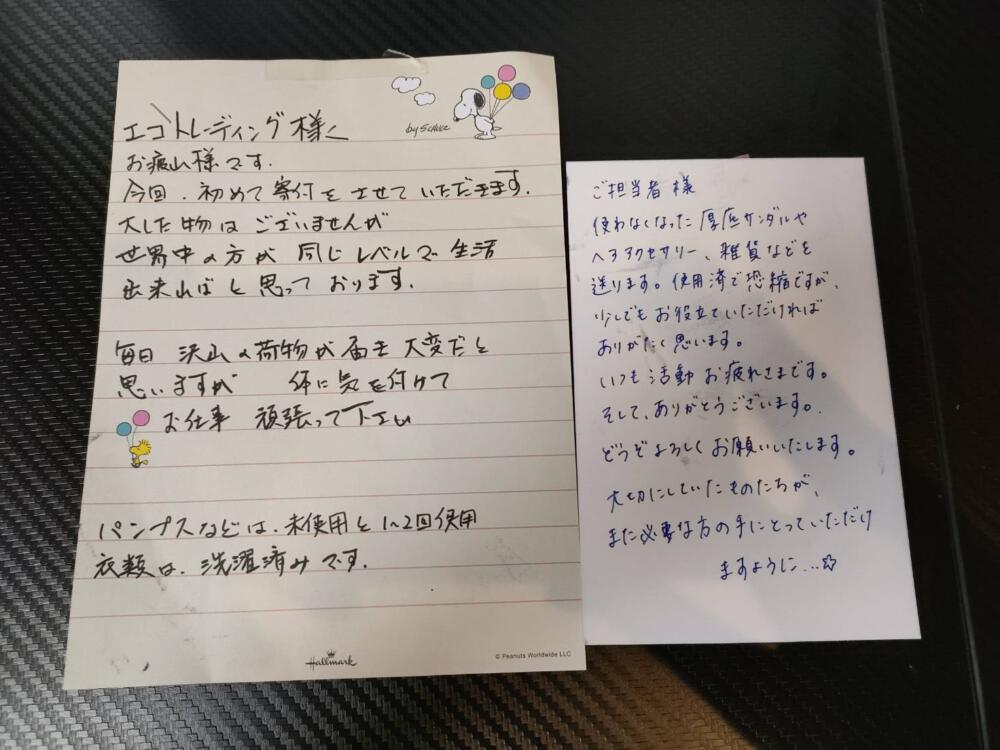 エコトレーディング様へ
お疲れ様です.
今回.初めて寄付をさせていただきます.
大した物はございませんが
世界中の方が同じレベルで生活
出来ればと思っております.
毎日 沢山の荷物が届き大変だと
思いますが 体に気を付けて
お仕事 頑張って下さい
パンプスなどは.未使用と1~2回使用
衣類は.洗濯済みです.
by SCHULZ
Hallmark
© Peanuts Worldwide LLC
ご担当者様
使わなくなった厚底サンダルや
ヘアアクセサリー、雑貨などを
送ります。使用済で恐縮ですが、
少しでもお役立ていただければ
ありがたく思います。
いつも活動お疲れさまです。
そして、ありがとうございます。
どうぞよろしくお願いいたします。
大切にしていたものたちが、
また必要な方の手にとっていただけ
ますように…☆